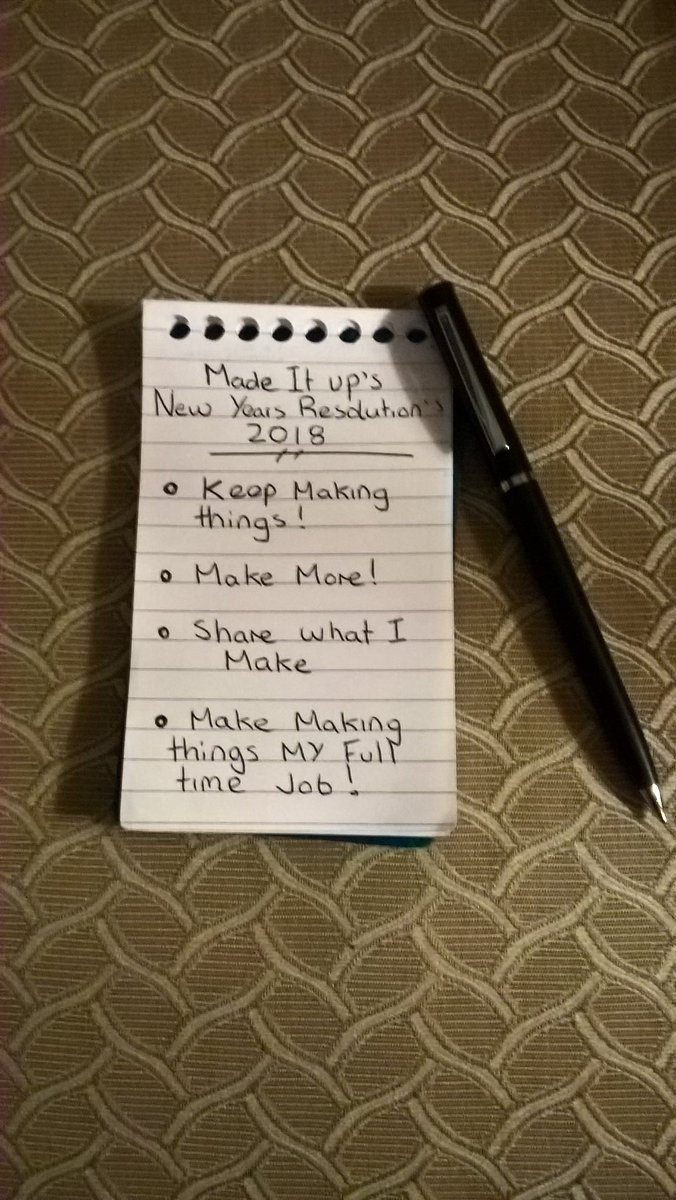 Made It up's
New Years Resolution's
2018
• Keep Making
things!
• Make More!
• Share what I
Make
• Make Making
things MY Full
time Job!